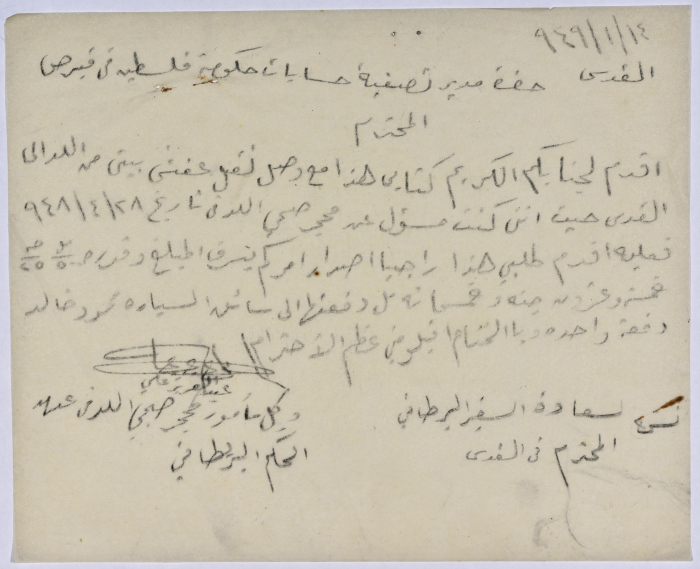 ٩٤٩/١/١٤
القدس حضرة مدير تصفية حسابات حكومة فلسطين في قبرص
المحترم
اقدم لجنابكم الكريم كتابي هذا مع وصل نقل عفش بيتي من اللد الى
القدس حيث انني كنت مسؤل عن محجر صحي اللد في تاريخ ٩٤٨/٤/٢٨
فعليه اقدم طلبي هذا راجيا اصدار امركم بصرف المبلغ وقدره
خمسة وعشرون جنيه وخمسمائة مل دفعتها الى سائق السياره محمود خالد
دفعة واحده وبالختام اقبلو مني عظم الاحترام
عبد العزيز علي
وكيل مأمور محجر صحي اللد في عهد
الحكم البريطاني
نسخه لسعادة السفير البرطاني
المحترم في القدس